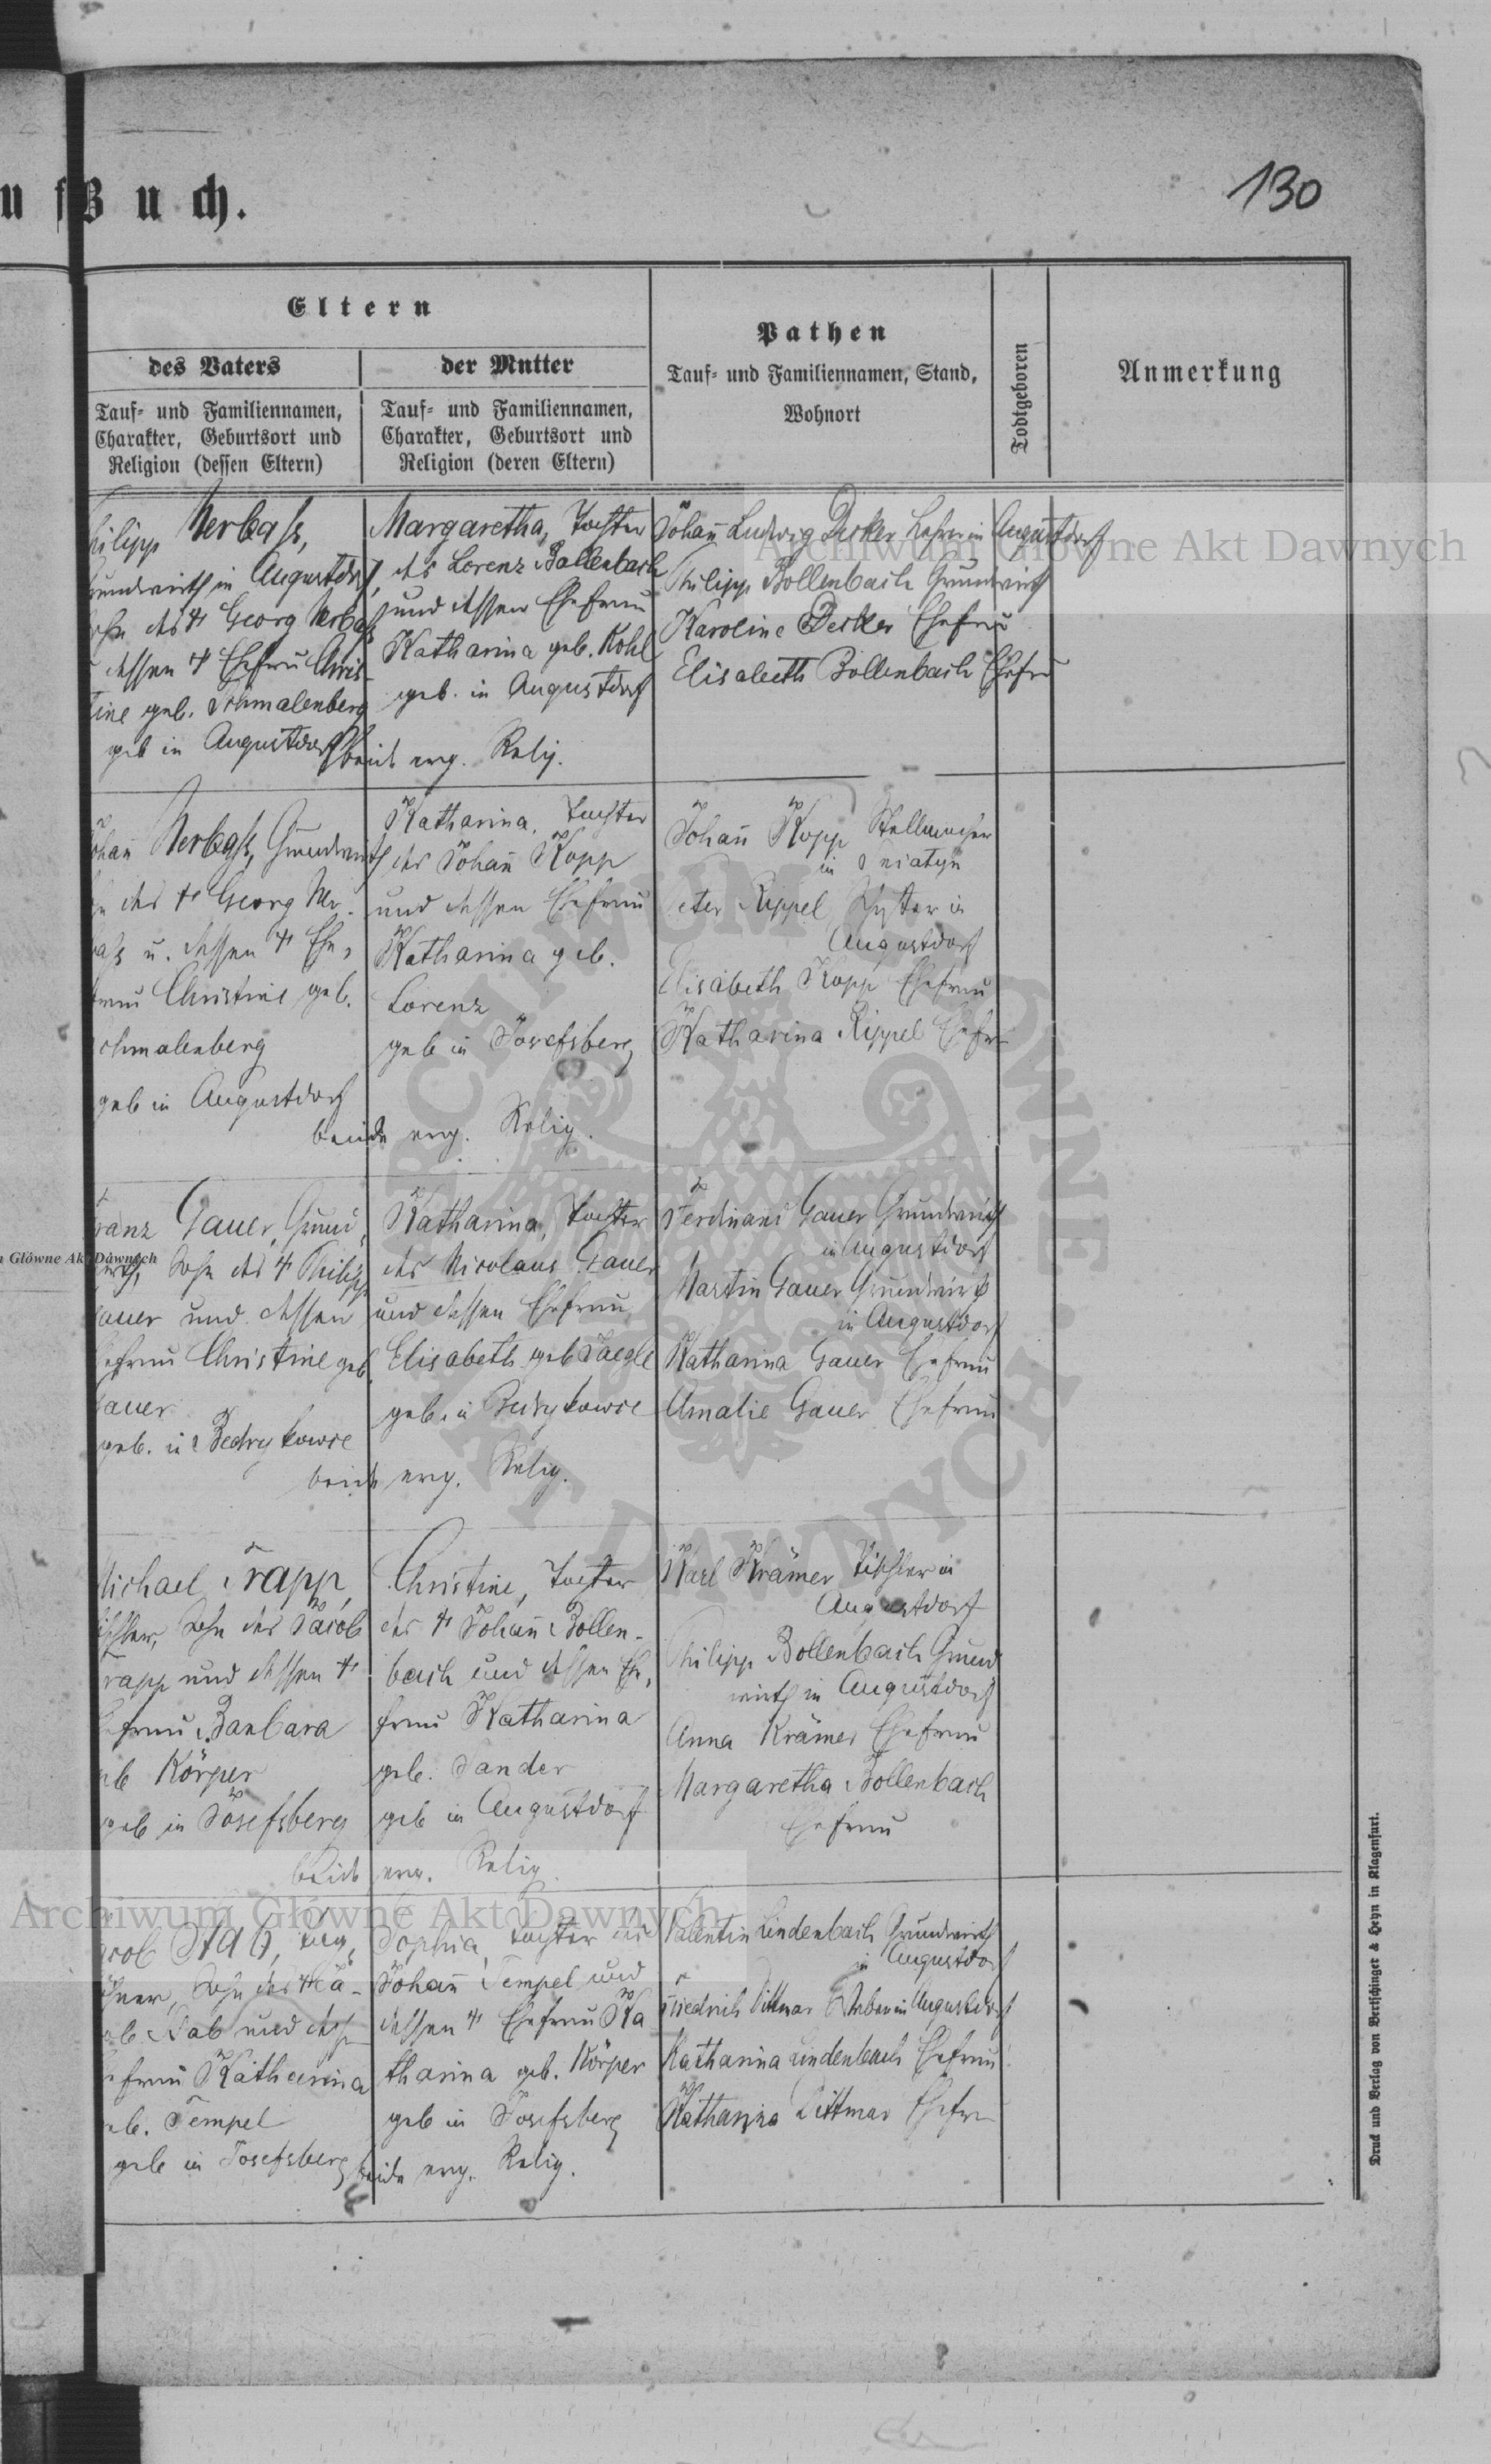 u f B u ch.
130
Eltern
des Vaters
der Mutter
Tauf- und Familiennamen,
Charakter, Geburtsort und
Religion (dessen Eltern)
Tauf- und Familiennamen,
Charakter, Geburtsort und
Religion (deren Eltern)
Pathen
Tauf- und Familiennamen, Stand,
Wohnort
Todtgeboren
Anmerkung
hilipp Verbaß,
rundwirth in Augustdorf,
ohn des † Georg Verbaß
dessen † Ehefrau Chris-
tine geb. Schmalenberg
geb in Augustdorf
Margaretha, Tochter
des Lorenz Bollenbach
und dessen Ehefrau
Katharina geb. Kohl
geb. in Augustdorf
beide evg. Relig.
Johann Ludwig Decker Lehrer in Augustdorf
Philipp Bollenbach Grundwirth
Karoline Decker Ehefrau
Elisabeth Bollenbach Ehefrau
ohann Verbaß, Grundwirth
des † Georg Ver-
baß u. dessen † Ehe-
frau Christine geb.
chmalenberg
geb in Augustdorf
Katharina, Tochter
des Johann Kopp
und dessen Ehefrau
Katharina geb.
Lorenz
geb in Josefsberg
beide evg. Relig.
Johann Kopp Stellmacher
in Sniatyn
Peter Rippel
in
Augustdorf
Elisabeth Kopp Ehefrau
Katharina Rippel Ehefrau
ranz Gauer, Grund-
wirth, Sohn des † Philipp
auer und dessen
hefrau Christine geb.
auer
geb. in Bedrykowce
Katharina, Tochter
des Nicolaus Gauer
und dessen Ehefrau
Elisabeth geb Jaegle
geb. in Bedrykowce
beide evg. Relig.
Ferdinand Gauer Grundwirth
in Augustdorf
Martin Gauer Grundwirth
in Augustdorf
Katharina Gauer Ehefrau
Amalie Gauer Ehefrau
Michael Trapp,
ischler, Sohn des Jacob
Trapp und dessen †
hefrau Barbara
eb Körper
geb in Josefsberg
Christine, Tochter
des † Johann Bollen-
bach und dessen Ehe-
frau Katharina
geb. Sander
geb in Augustdorf
beide evg. Relig.
Karl Krämer Tischler in
Augustdorf
Philipp Bollenbach Grund
wirth in Augustdorf
Anna Krämer Ehefrau
Margaretha Bollenbach
Ehefrau
acob Stab, Tag-
öhner, Sohn des † Ja-
ob Stab und dessen
hefrau Katharina
eb. Tempel
geb in Josefsberg
Sophia, Tochter des
Johann Tempel und
dessen † Ehefrau Ka
tharina geb. Körper
geb in Josefsberg
beide evg. Relig.
Valentin Lindenbach Grundwirth
in Augustdorf
Friedrich Dittmar Weber in Augustdorf
Katharina Lindenbach Ehefrau
Katharina Dittmar Ehefrau
Druck und Verlag von Bertschinger & Heyn in Klagenfurt.
Archiwum Główne Akt Dawnych
n Główne Akt Dawnych
ARCHIWUM GŁÓWNE AKT DAWNYCH
Archiwum Główne Akt Dawnych